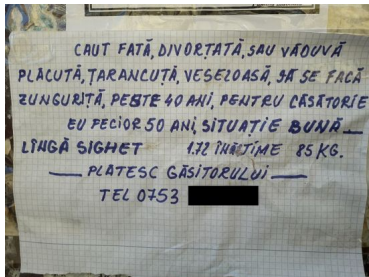 CAUT FATĂ, DIVORȚATĂ, SAU VĂDUVĂ
PLĂCUTĂ, ȚARANCUȚĂ, VESELOASĂ, SĂ SE FACĂ
ZUNGURIȚĂ, PESTE 40 ANI, PENTRU CĂSĂTORIE
EU FECIOR 50 ANI, SITUAȚIE BUNĂ
LÎNGĂ SIGHET 1.72 ÎNĂLȚIME 85 KG.
PLATESC GĂSITORULUI
TEL 0753